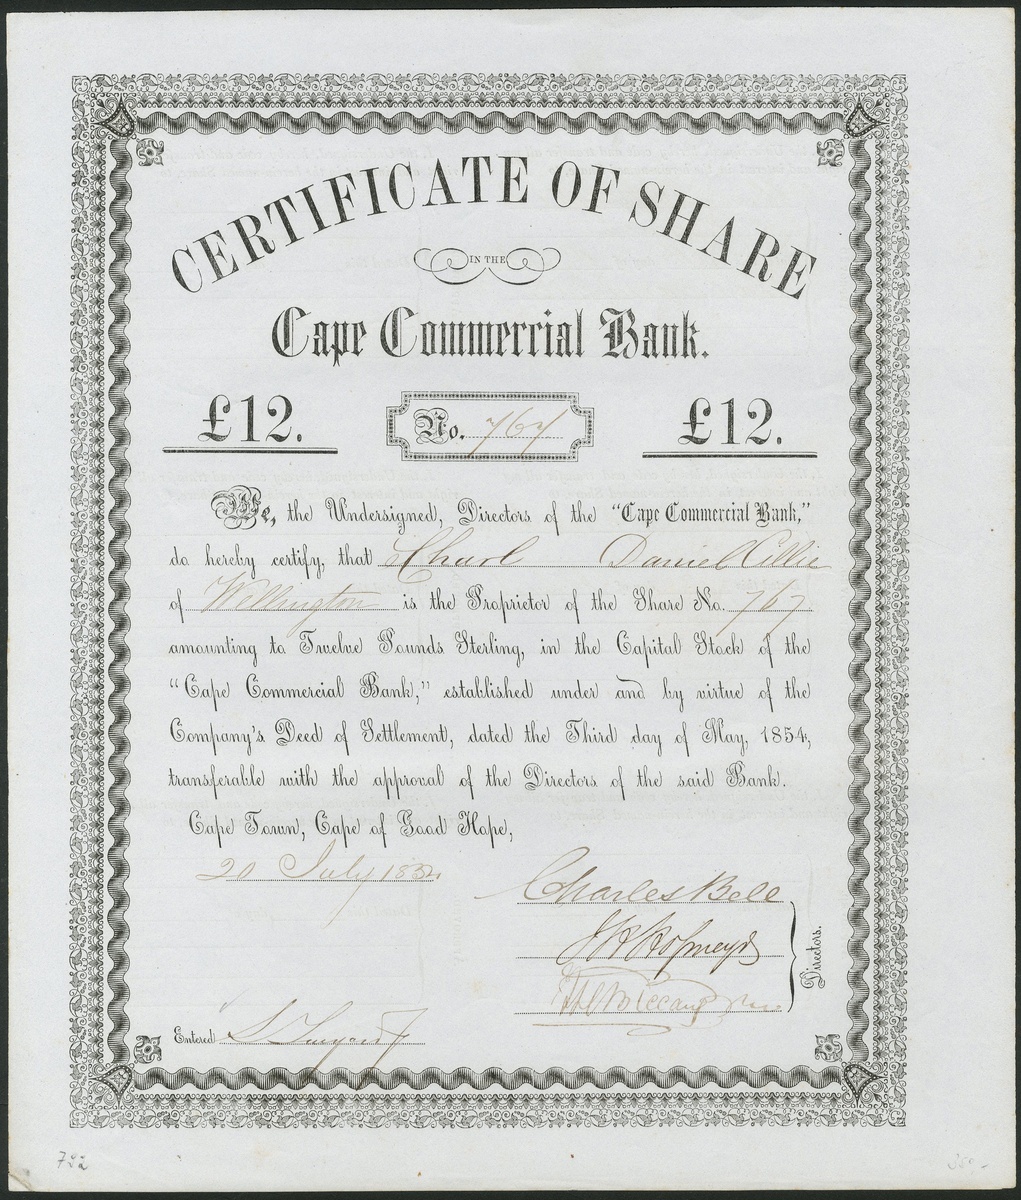 CERTIFICATE OF SHARE
IN THE
Cape Commercial Bank.
£12. No. 767 £12.
We, the Undersigned, Directors of the "Cape Commercial Bank,"
do hereby certify, that Charl Daniel Cillie
of Wellington is the Proprietor of the Share No. 767
amounting to Twelve Pounds Sterling, in the Capital Stock of the
"Cape Commercial Bank," established under and by virtue of the
Company's Deed of Settlement, dated the Third day of May, 1854,
transferable with the approval of the Directors of the said Bank.
Cape Town, Cape of Good Hope,
20 July 1854
Charles Bell
J H Hofmeyr
Directors.
Entered
782